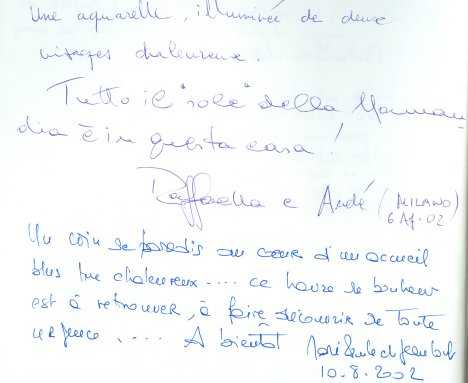 Une aquarelle, illuminée de deux
visages chaleureux.
Tutto il "sole" della Norman
dia è in questa casa!
Raffaella e André (MILANO)
6 Ag. 02
Un coin de paradis au cœur d'un accueil
plus que chaleureux.... ce havre de bonheur
est à retrouver, à faire découvrir de toute
urgence..... A bientôt
10.8.2002